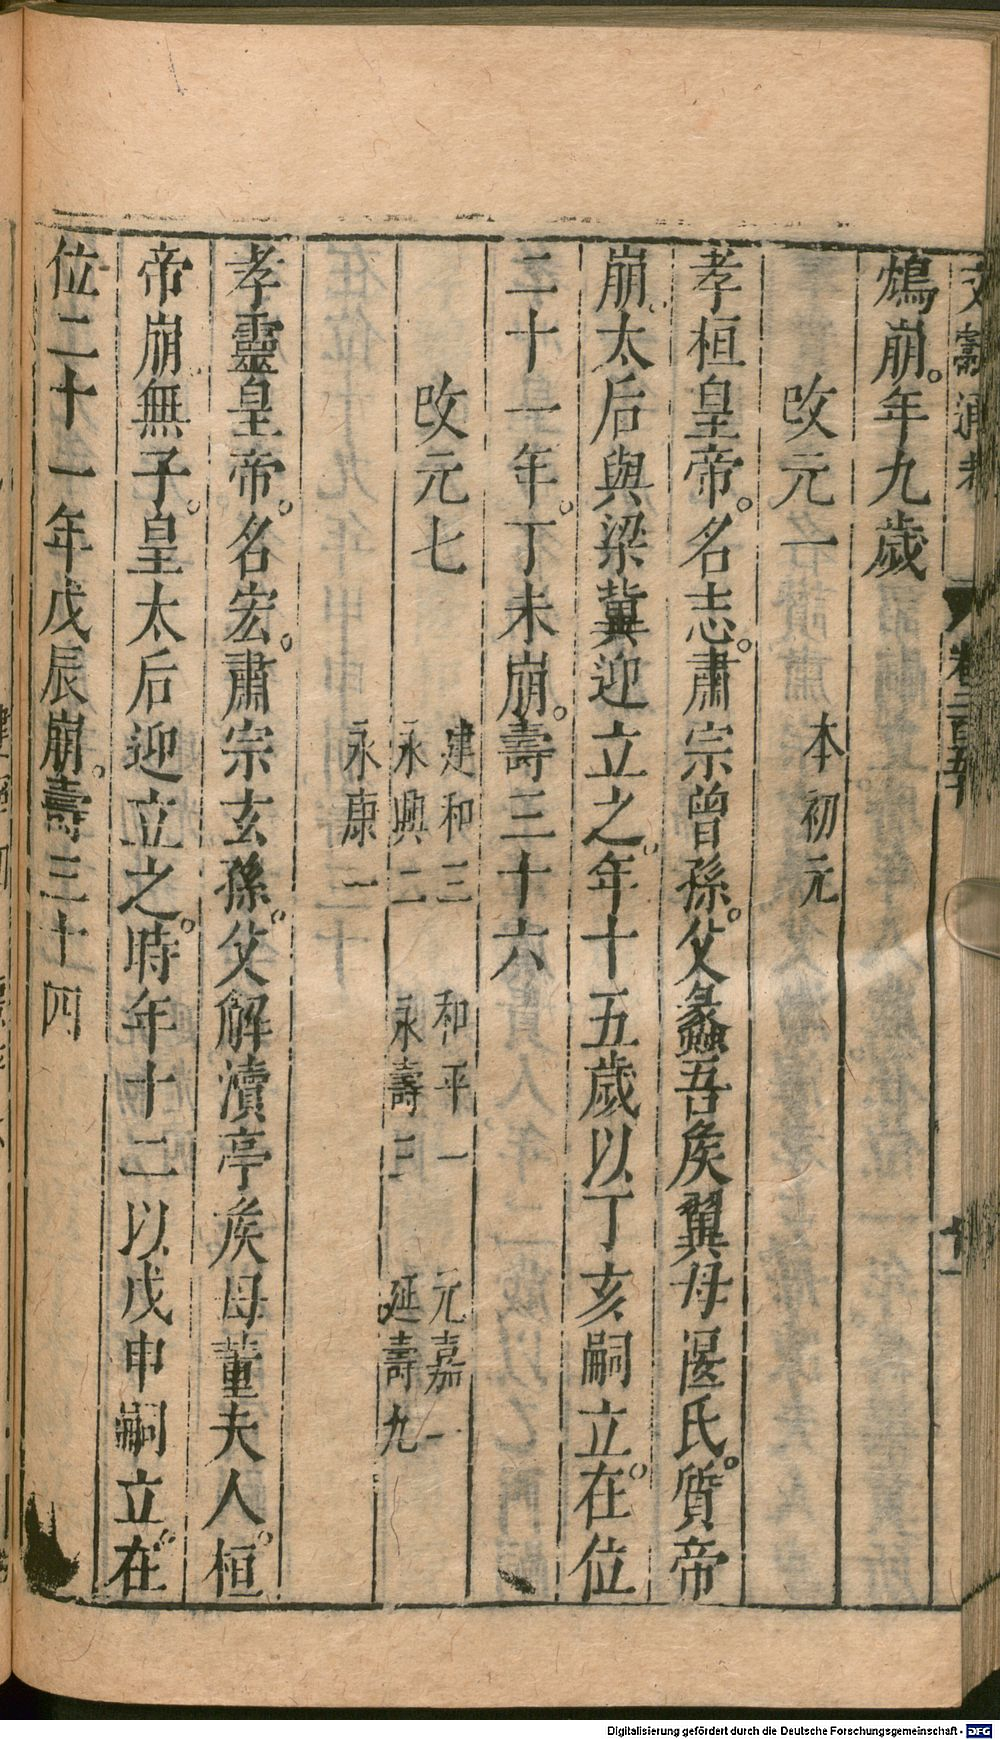 文獻通考 卷二百五十 十一
鴆崩。年九歲
改元一 本初元
孝桓皇帝。名志。肅宗曾孫。父蠡吾侯翼母匽氏。質帝
崩。太后與梁冀迎立之。年十五歲以丁亥嗣立。在位
二十一年。丁未崩。壽三十六
改元七 建和三 和平一 元嘉一
永興二 永壽三 延壽九
永康一
孝靈皇帝。名宏。肅宗玄孫。父解瀆亭侯母董夫人。桓
帝崩無子。皇太后迎立之。時年十二以戊申嗣立。在
位二十一年戊辰崩。壽三十四
Digitalisierung gefördert durch die Deutsche Forschungsgemeinschaft - DFG